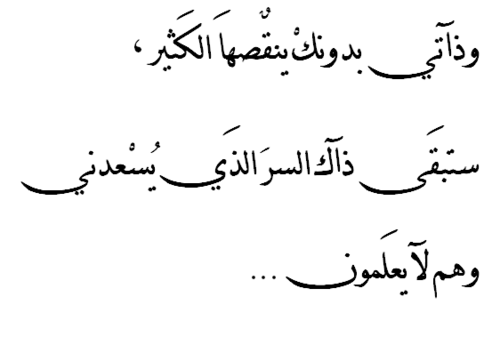 وذآتي بدونكْ ينقٌصهاَ الكَثير،
ستبقَى ذآكَ السرَ الذَي يُسْعدني
وهم لآ يعلَمون ...